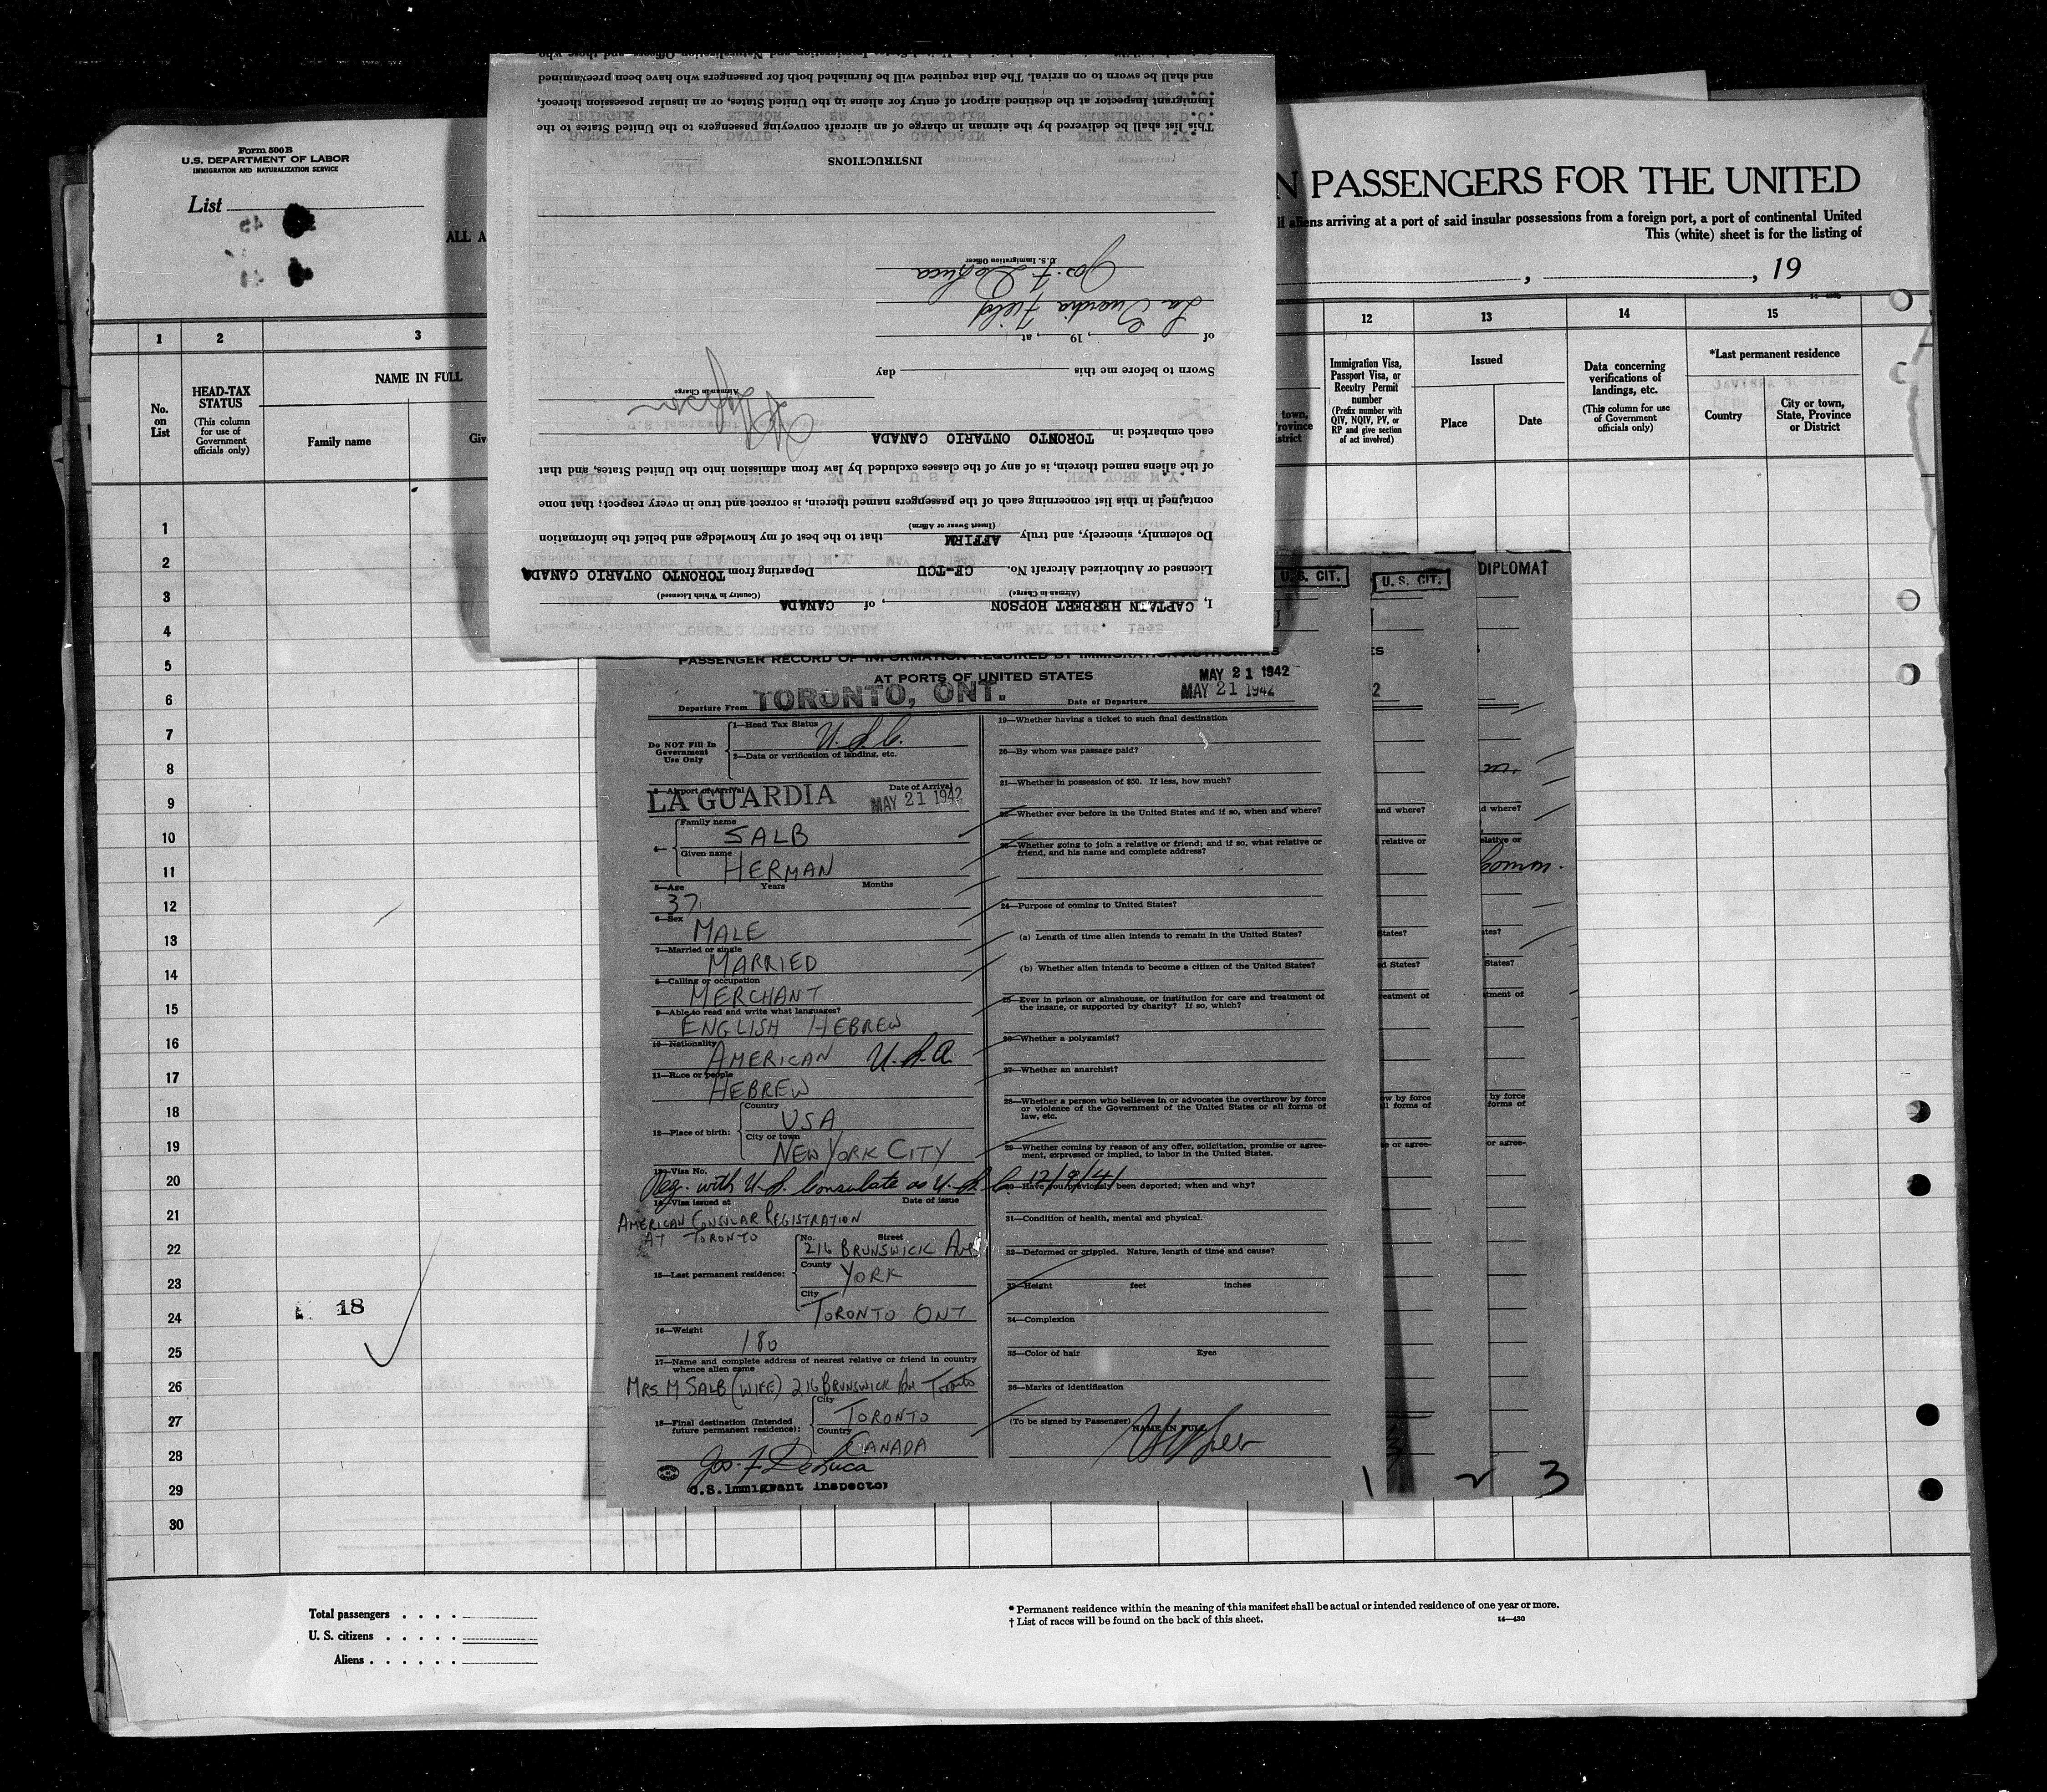 Form 500B
U.S. DEPARTMENT OF LABOR
IMMIGRATION AND NATURALIZATION SERVICE
List
ALL A
N PASSENGERS FOR THE UNITED
ll aliens arriving at a port of said insular possessions from a foreign port, a port of continental United
This (white) sheet is for the listing of
, , 19
1 2 3 12 13 14 15
No. on List
HEAD-TAX STATUS
(This column for use of Government officials only)
NAME IN FULL
Family name
Giv
town,
Province
istrict
Immigration Visa, Passport Visa, or Reentry Permit number
(Prefix number with QIV, NQIV, PV, or RP and give section of act involved)
Issued
Place
Date
Data concerning verifications of landings, etc.
(This column for use of Government officials only)
*Last permanent residence
Country
City or town, State, Province or District
1
2
3
4
5
6
7
8
9
10
11
12
13
14
15
16
17
18
19
20
21
22
23
24
25
26
27
28
29
30
18
Total passengers . . . .
U. S. citizens . . . . .
Aliens . . . . . .
* Permanent residence within the meaning of this manifest shall be actual or intended residence of one year or more.
† List of races will be found on the back of this sheet.
14—430
I, CAPTAIN HERBERT HOPSON, of CANADA
(Airman in Charge) (Country in Which Licensed)
Licensed or Authorized Aircraft No. CF-TCU Departing from TORONTO ONTARIO CANADA
Do solemnly, sincerely, and truly AFFIRM that to the best of my knowledge and belief the information
(Insert Swear or Affirm)
contained in this list concerning each of the passengers named therein, is correct and true in every respect; that none
of the aliens named therein, is of any of the classes excluded by law from admission into the United States, and that
each embarked in TORONTO ONTARIO CANADA
Airman in Charge
Sworn to before me this day
of , 19 , at
La Guardia Field
Jos. F. DeLuca
U. S. Immigration Officer
INSTRUCTIONS
This list shall be delivered by the airman in charge of an aircraft conveying passengers to the United States to the
Immigrant Inspector at the destined airport of entry for aliens in the United States, or an insular possession thereof,
and shall be sworn to on arrival. The data required will be furnished both for passengers who have been preexamined
U. S. CIT.
U. S. CIT.
DIPLOMAT
PASSENGER RECORD OF INFORMATION REQUIRED BY IMMIGRATION AUTHORITIES
AT PORTS OF UNITED STATES
MAY 21 1942
Departure From TORONTO, ONT.
Date of Departure MAY 21 1942
Do NOT Fill In Government Use Only
1—Head Tax Status U.S.C.
2—Data or verification of landing, etc.
3—Airport of Arrival LA GUARDIA
Date of Arrival MAY 21 1942
4— Family name SALB
Given name HERMAN
5—Age Years Months
37
6—Sex
MALE
7—Married or single
MARRIED
8—Calling or occupation
MERCHANT
9—Able to read and write what languages?
ENGLISH HEBREW
10—Nationality
AMERICAN U.S.A.
11—Race or people
HEBREW
12—Place of birth:
Country
USA
City or town
NEW YORK CITY
13—Visa No.
Reg. with U.S. Consulate as U.S.C. 12/9/41
14—Visa issued at Date of issue
AMERICAN CONSULAR REGISTRATION
AT TORONTO
15—Last permanent residence:
No. Street
216 BRUNSWICK AVE
County
YORK
City
TORONTO ONT
16—Weight
180
17—Name and complete address of nearest relative or friend in country
whence alien came
MRS M SALB (WIFE) 216 BRUNSWICK AV TORONTO
18—Final destination (Intended future permanent residence):
City
TORONTO
Country
CANADA
Jos. F. DeLuca
U.S. Immigrant Inspector
19—Whether having a ticket to such final destination
20—By whom was passage paid?
21—Whether in possession of $50. If less, how much?
22—Whether ever before in the United States and if so, when and where?
23—Whether going to join a relative or friend; and if so, what relative or
friend, and his name and complete address?
24—Purpose of coming to United States?
(a) Length of time alien intends to remain in the United States?
(b) Whether alien intends to become a citizen of the United States?
25—Ever in prison or almshouse, or institution for care and treatment of
the insane, or supported by charity? If so, which?
26—Whether a polygamist?
27—Whether an anarchist?
28—Whether a person who believes in or advocates the overthrow by force
or violence of the Government of the United States or all forms of
law, etc.
29—Whether coming by reason of any offer, solicitation, promise or agree-
ment, expressed or implied, to labor in the United States.
30—Have you previously been deported; when and why?
31—Condition of health, mental and physical.
32—Deformed or crippled. Nature, length of time and cause?
33—Height feet inches
34—Complexion
35—Color of hair Eyes
36—Marks of identification
(To be signed by Passenger)
NAME IN FULL
1 2 3